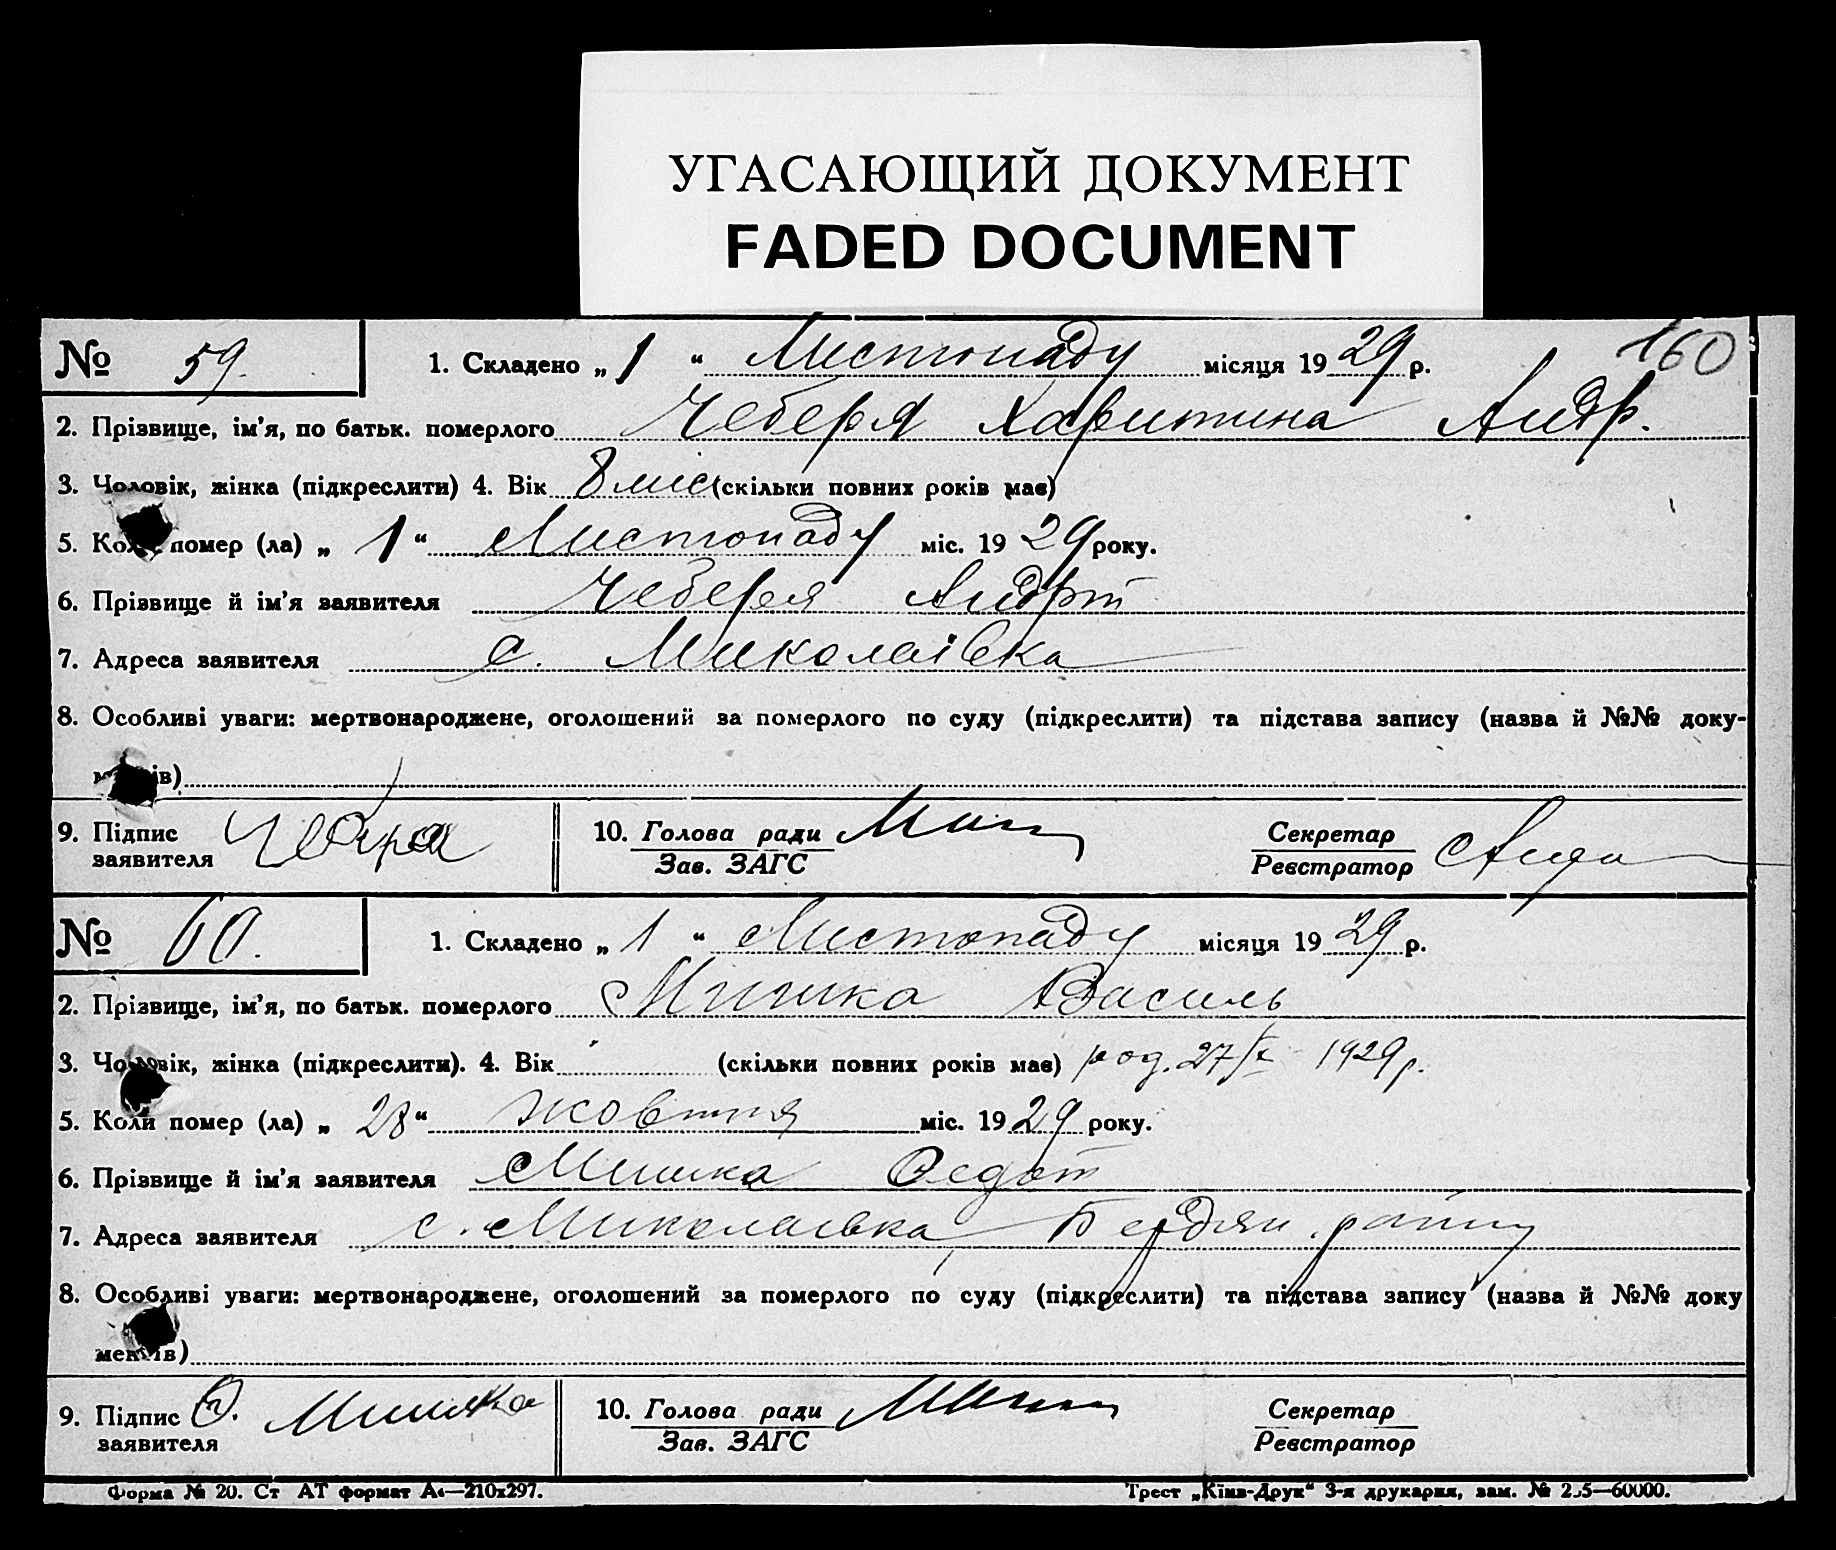 УГАСАЮЩИЙ ДОКУМЕНТ
FADED DOCUMENT
160
№ 59. 1. Складено „ 1 “ Листопаду місяця 1929 р.
2. Прізвище, ім'я, по батьк. померлого Чеберя Харитина Андр.
3. Чоловік, жінка (підкреслити) 4. Вік 8 міс (скільки повних років має)
5. Коли помер (ла) „ 1 “ Листопаду міс. 1929 року.
6. Прізвище й ім'я заявителя Чеберя
7. Адреса заявителя с. Миколаівка
8. Особливі уваги: мертвонароджене, оголошений за померлого по суду (підкреслити) та підстава запису (назва й №№ доку-
ментів)
9. Підпис заявителя 10. Голова ради Секретар
Зав. ЗАГС Реєстратор
№ 60. 1. Складено „ 1 “ Листопаду місяця 1929 р.
2. Прізвище, ім'я, по батьк. померлого Мишка Василь
3. Чоловік, жінка (підкреслити). 4. Вік (скільки повних років має) род. 27/X 1929 р.
5. Коли помер (ла) „ 28 “ жовтня міс. 1929 року.
6. Прізвище й ім'я заявителя Мишка Федот
7. Адреса заявителя с. Миколаівка Бердян. району
8. Особливі уваги: мертвонароджене, оголошений за померлого по суду (підкреслити) та підстава запису (назва й №№ доку
ментів)
9. Підпис заявителя Ф. Мишка 10. Голова ради Секретар
Зав. ЗАГС Реєстратор
Форма № 20. Ст АТ формат А4—210x297. Трест „Київ-Друк“ 3-я друкарня, зам. № 255—60000.